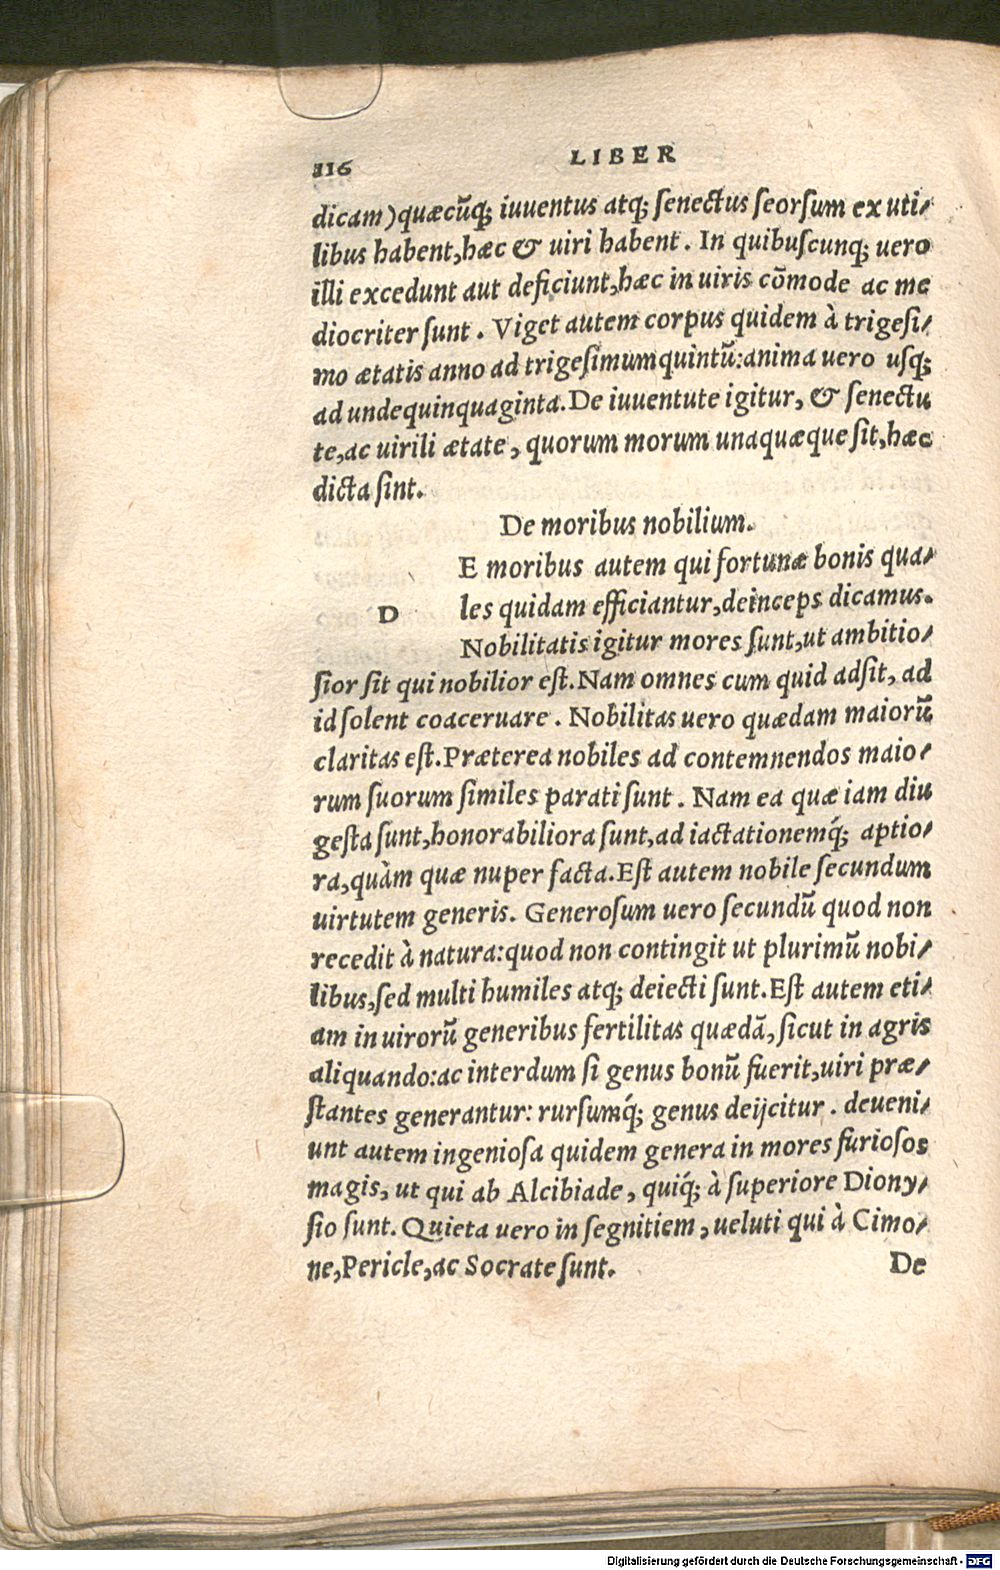 116 LIBER
dicam) quæcũq; iuuentus atq; ſenectus ſeorſum ex uti-
libus habent, hæc & uiri habent. In quibuſcunq; uero
illi excedunt aut deficiunt, hæc in uiris cõmode ac me
diocriter ſunt. Viget autem corpus quidem à trigeſi-
mo ætatis anno ad trigeſimumquintũ: anima uero uſq;
ad undequinquaginta. De iuuentute igitur, & ſenectu
te, ac uirili ætate, quorum morum unaquæque ſit, hæc
dicta ſint.
De moribus nobilium.
E moribus autem qui fortunæ bonis qua-
D les quidam efficiantur, deinceps dicamus.
Nobilitatis igitur mores ſunt, ut ambitio-
ſior ſit qui nobilior eſt. Nam omnes cum quid adſit, ad
id ſolent coaceruare. Nobilitas uero quædam maiorũ
claritas eſt. Præterea nobiles ad contemnendos maio-
rum ſuorum ſimiles parati ſunt. Nam ea quæ iam diu
geſta ſunt, honorabiliora ſunt, ad iactationemq́; aptio-
ra, quàm quæ nuper facta. Eſt autem nobile ſecundum
uirtutem generis. Generoſum uero ſecundũ quod non
recedit à natura: quod non contingit ut plurimũ nobi-
libus, ſed multi humiles atq; deiecti ſunt. Eſt autem eti-
am in uirorũ generibus fertilitas quædã, ſicut in agris
aliquando: ac interdum ſi genus bonũ fuerit, uiri præ-
ſtantes generantur: rurſumq́; genus deijcitur. deueni-
unt autem ingenioſa quidem genera in mores furioſos
magis, ut qui ab Alcibiade, quiq́; à ſuperiore Diony-
ſio ſunt. Quieta uero in ſegnitiem, ueluti qui à Cimo-
ne, Pericle, ac Socrate ſunt. De
Digitalisierung gefördert durch die Deutsche Forschungsgemeinschaft - DFG